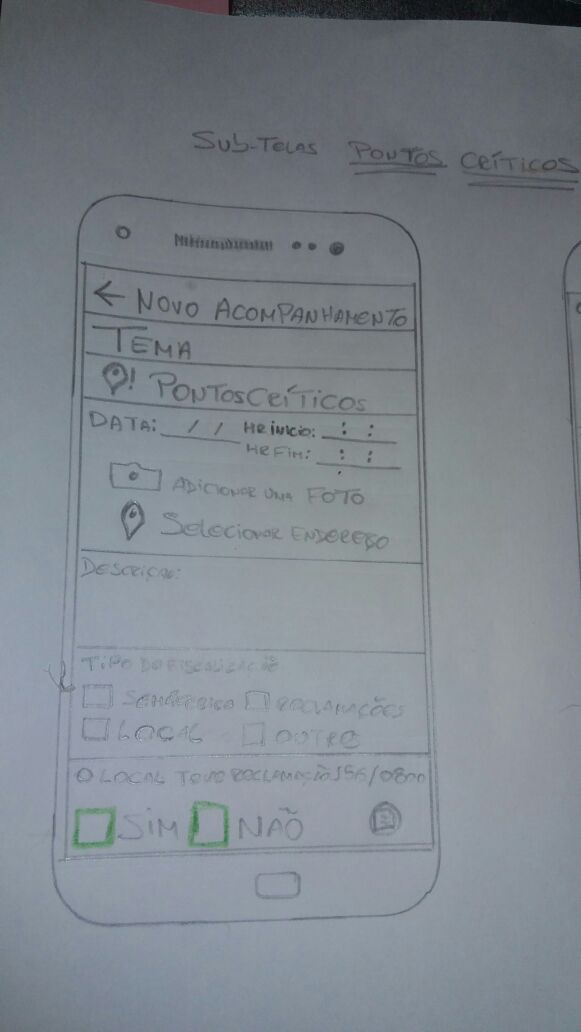 SUB-TELAS PONTOS CRÍTICOS
← NOVO ACOMPANHAMENTO
TEMA
! PONTOS CRÍTICOS
DATA: / / HR INICIO: : :
HR FIM: : :
ADICIONAR UMA FOTO
SELECIONAR ENDEREÇO
DESCRIÇÃO:
TIPO DE FISCALIZAÇÃO
RECLAMAÇÕES
LOCAL OUTRO
O LOCAL TEVE RECLAMAÇÃO 156/0800
SIM NÃO